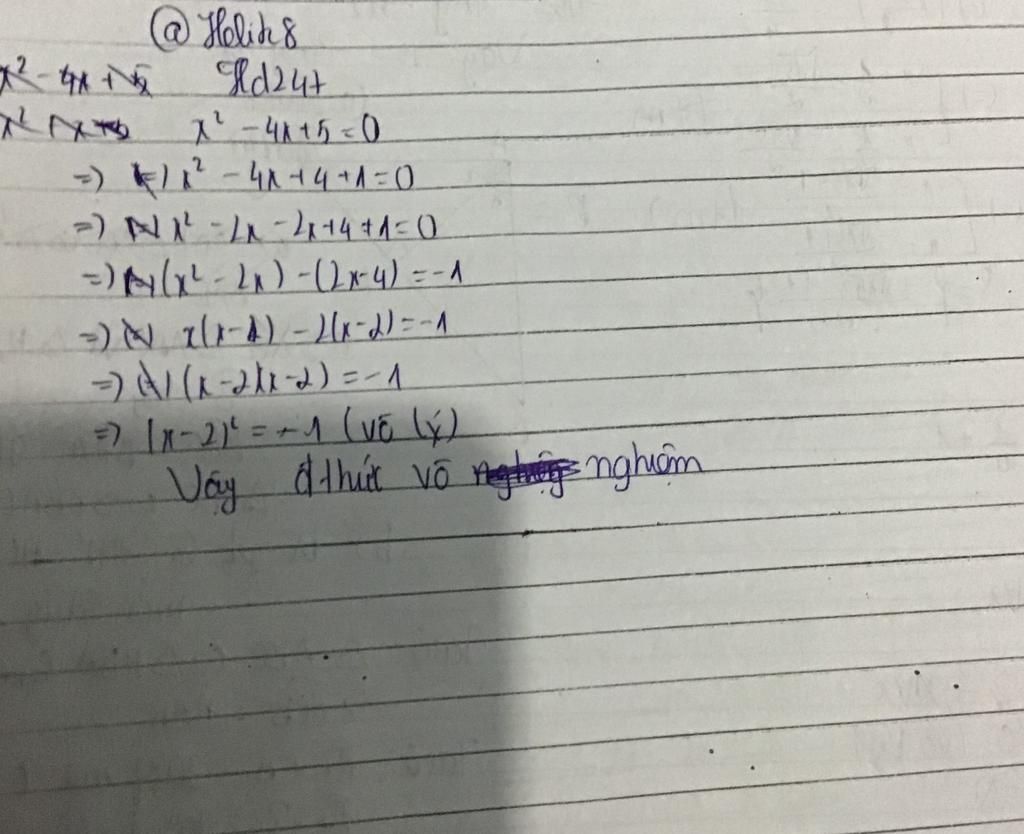 @ Holih8
x² - 4x + 5 Hd24+
x² - 4x + 5 = 0
=) x² - 4x + 4 + 1 = 0
=) x² - 2x - 2x + 4 + 1 = 0
=) (x² - 2x) - (2x - 4) = -1
=) x(x - 2) - 2(x - 2) = -1
=) (x - 2)(x - 2) = -1
=) (x - 2)² = -1 (vô lý)
Vậy đ thức vô nghiệm